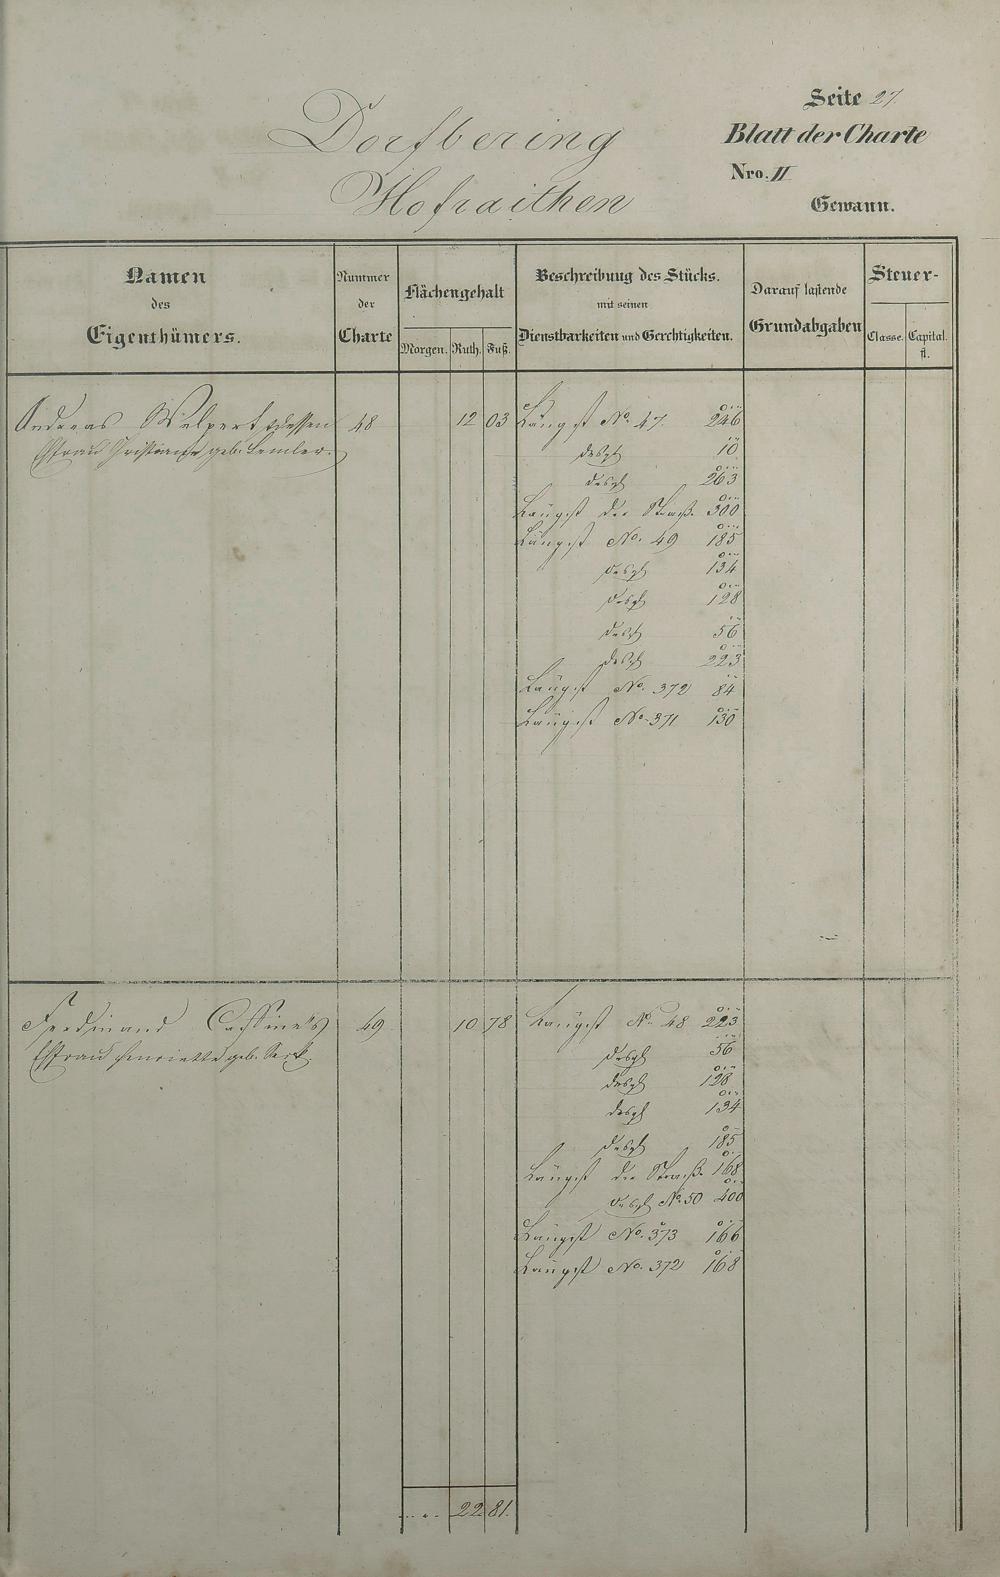 Seite 27.
Dorfbering
Blatt der Charte
Nro. II
Hofraithen
Gewann.
Namen des Eigenthümers.
Nummer der Charte
Flächengehalt
Morgen. Ruth. Fuß.
Beschreibung des Stücks. mit seinen Dienstbarkeiten und Gerechtigkeiten.
Darauf lastende Grundabgaben
Steuer-
Classe. Capital. fl.
Andreas Wilpert dessen 48 12 03 Längst No. 47. 246
Ehfrau Christiane geb. Lemler. desgl 10
desgl 263
Längst der Straß. 300
Längst No. 49 185
desgl 134
desgl 128
desgl 56
desgl 223
Längst No. 372 84
Längst No. 371 130
Ferdinand Cassine's 49 10 78 Längst No. 48 223
Ehfrau Henriette geb. desgl 56
desgl 128
desgl 134
desgl 185
Längst der Straß. 168
desgl No. 50 400
Längst No. 373 166
Längst No. 372 168
22 81.